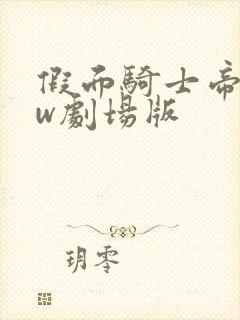 假面騎士帝
w劇場版
玥零